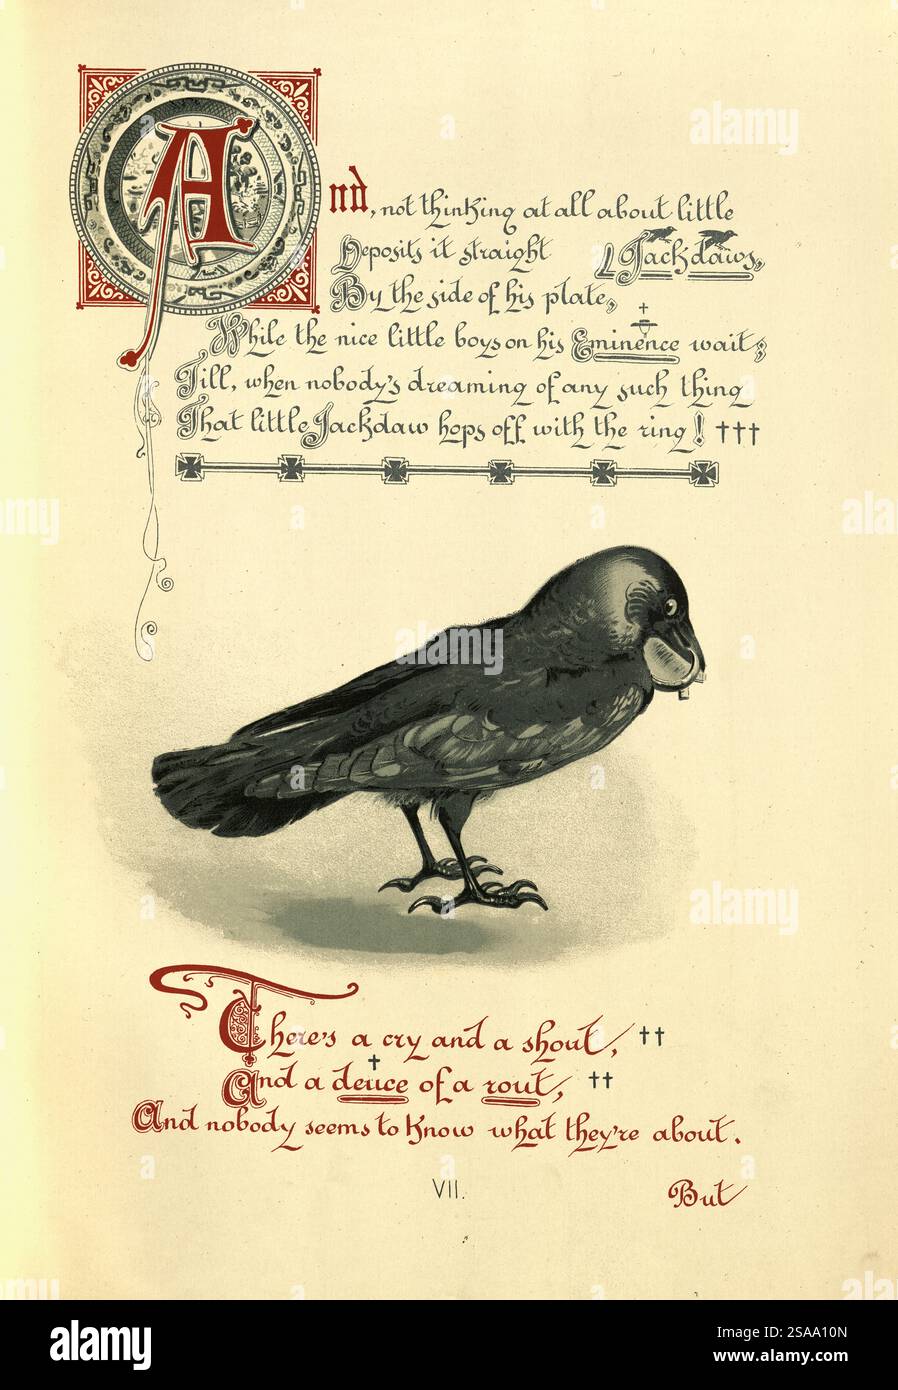 And, not thinking at all about little
Deposits it straight Jackdaws,
By the side of his plate,
While the nice little boys on his Eminence wait;
Till, when nobody's dreaming of any such thing
That little Jackdaw hops off with the ring! †††
There's a cry and a shout, ††
And a deuce of a rout, ††
And nobody seems to know what they're about.
VII.
But
alamy
alamy
Image ID: 2SAA10N
www.alamy.com